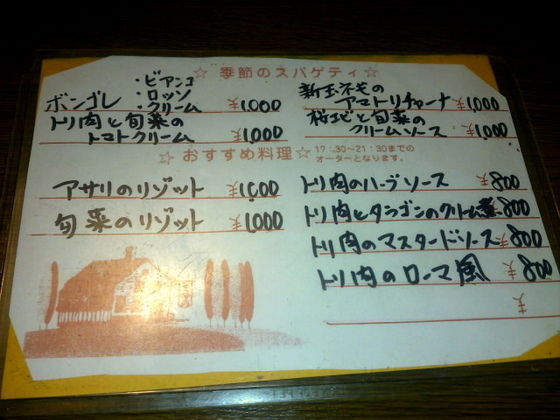 ☆ 季節のスパゲティ ☆
ボンゴレ ・ビアンコ ¥1,000
・ロッソ
・クリーム
トリ肉と旬菜の
トマトクリーム ¥1,000
新玉ネギの
アマトリチャーナ ¥1,000
桜エビと旬菜の
クリームソース ¥1,000
☆ おすすめ料理☆ 17:30〜21:30までの
オーダーとなります。
アサリのリゾット ¥1,000
旬菜のリゾット ¥1,000
トリ肉のハーブソース ¥800
トリ肉とタラゴンのクリーム煮 ¥800
トリ肉のマスタードソース ¥800
トリ肉のローマ風 ¥800
¥